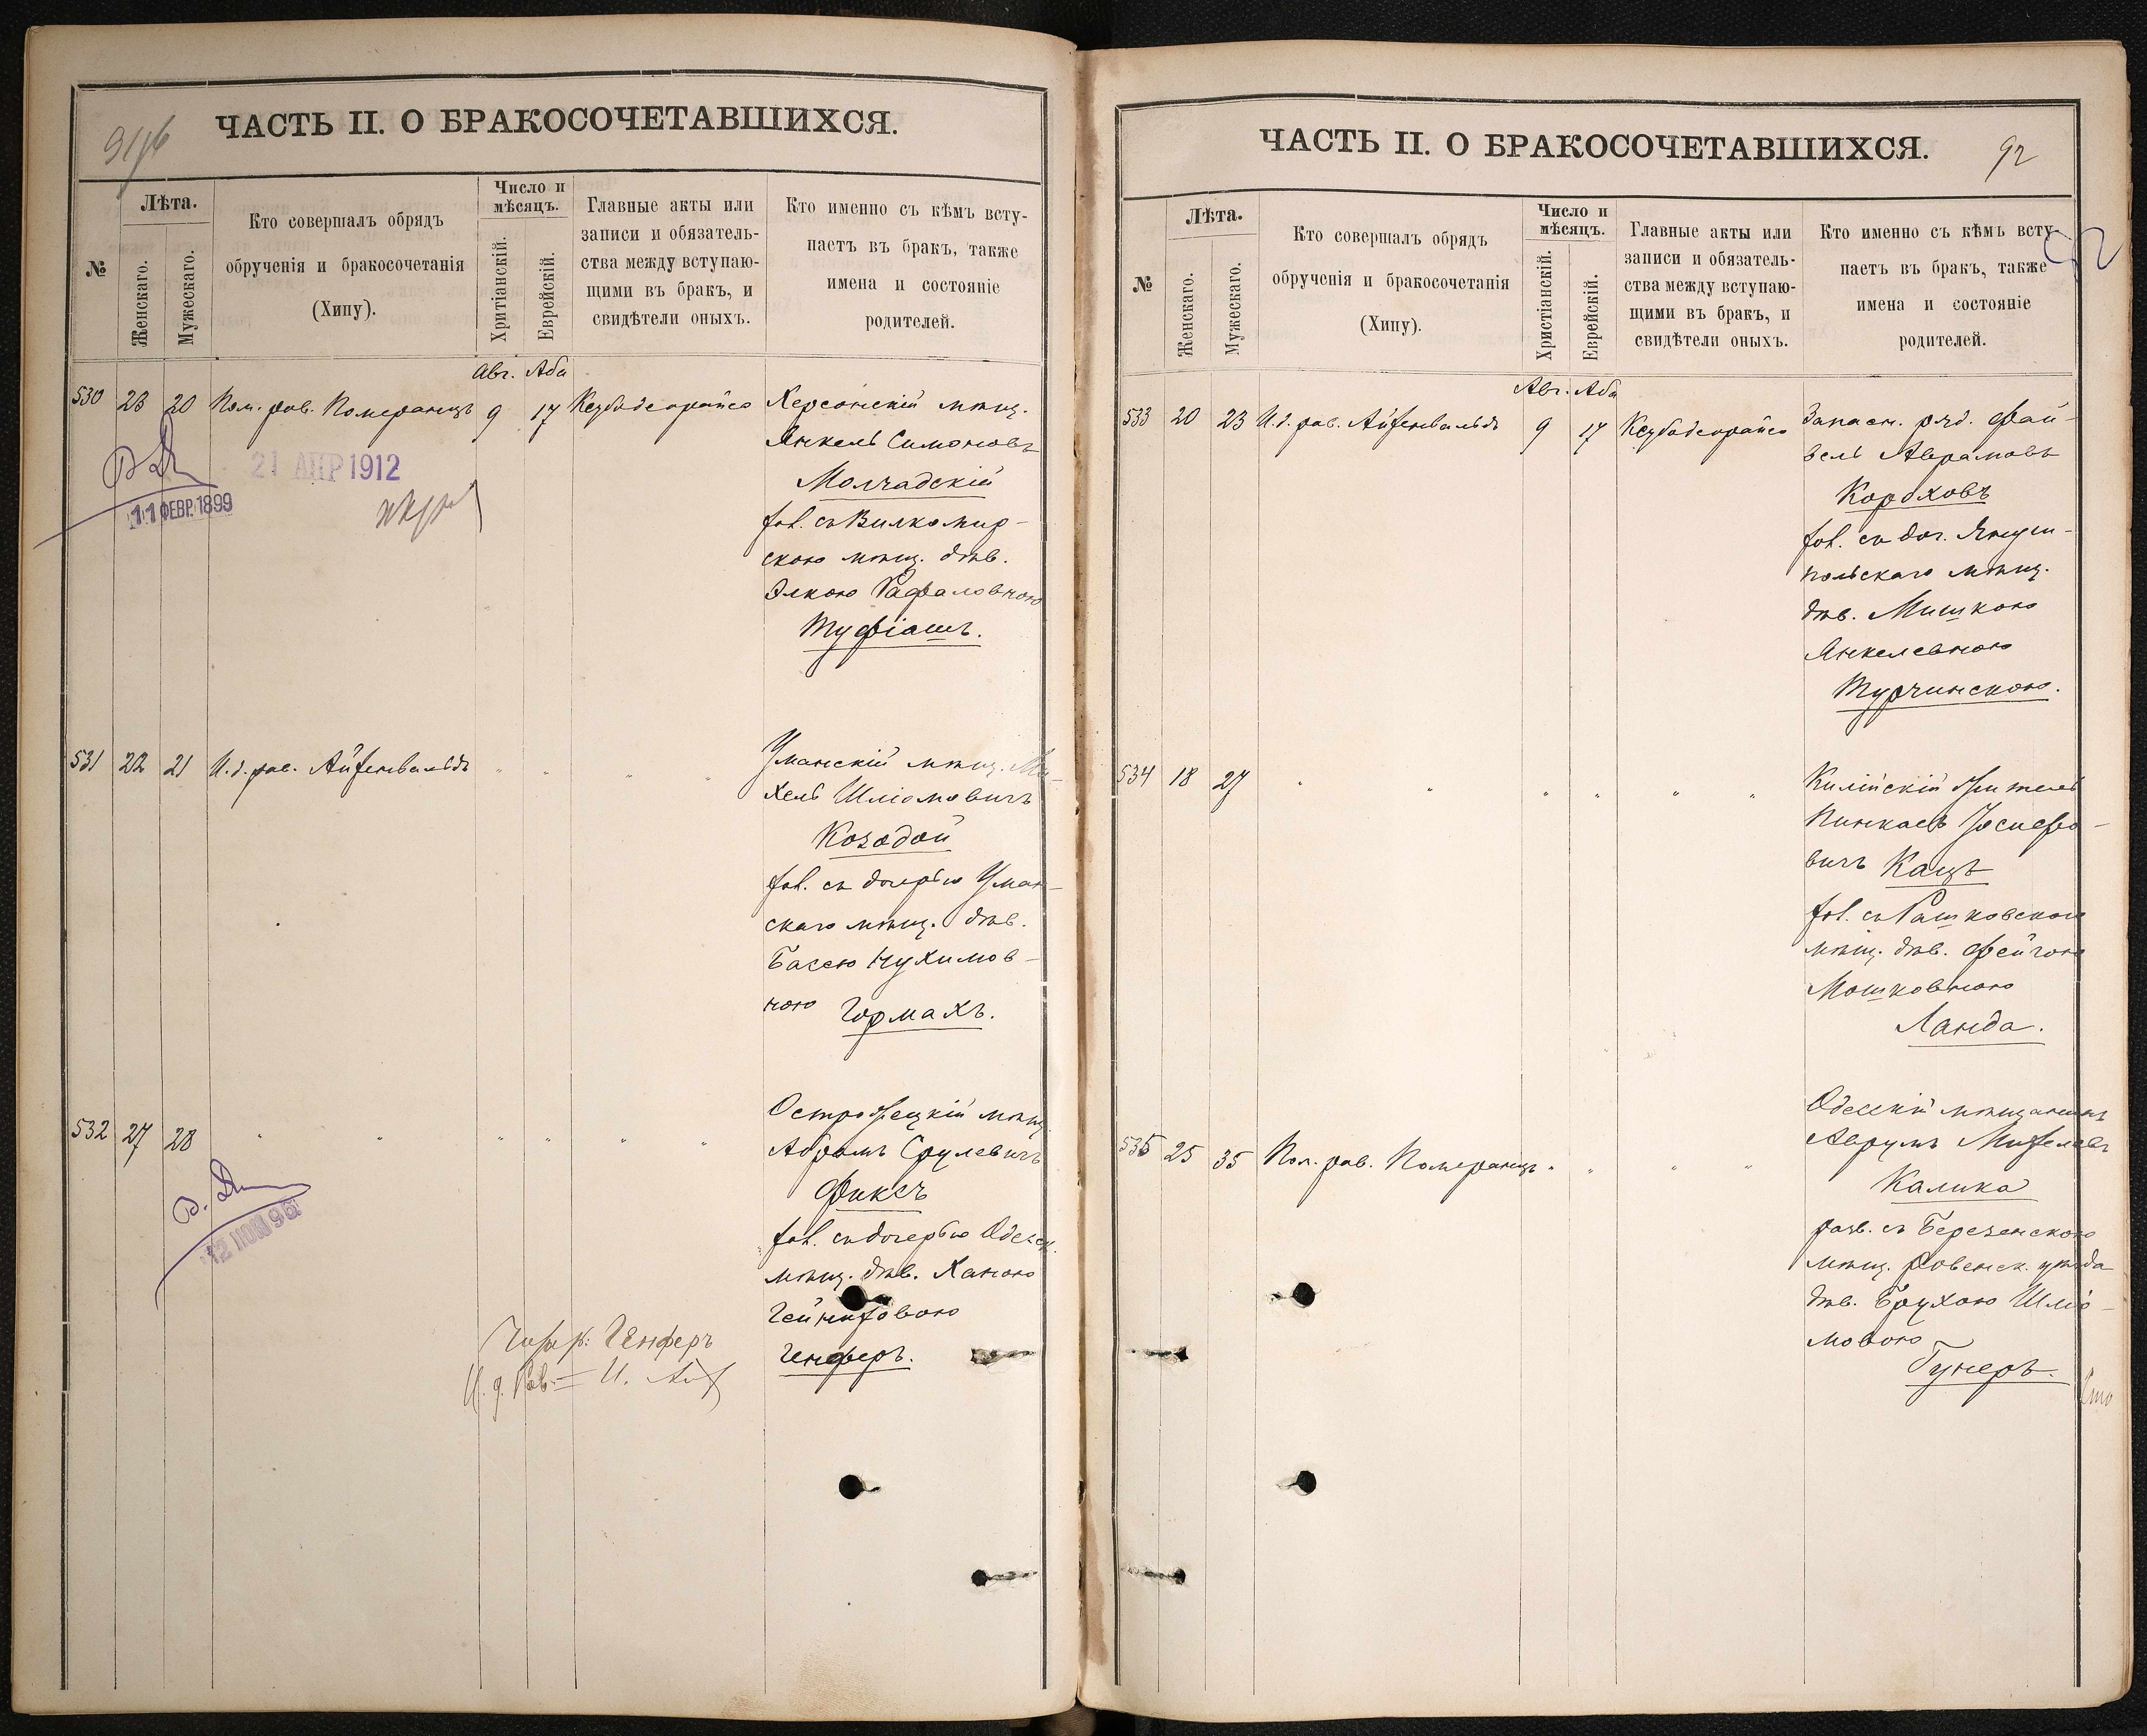 ЧАСТЬ II. О БРАКОСОЧЕТАВШИХСЯ.
№
Лѣта.
Женскаго.
Мужескаго.
Кто совершалъ обрядъ
обрученія и бракосочетанія
(Хипу).
Число и
мѣсяцъ.
Хритіанскій.
Еврейскій.
Главные акты или
записи и обязатель-
ства между вступаю-
щими въ бракъ, и
свидѣтели оныхъ.
Кто именно съ кѣмъ всту-
паетъ въ бракъ, также
имена и состояніе
родителей.
Авг. Аба
530 23 20 Пом. рав. Померанцъ 9 17
Херсонскій мѣщ.
Янкель Симоновъ
Молчадскій
хол. съ Вилкомир-
скою мѣщ. дѣв.
Элкою Рафаловною
Туфіашъ.
21 АПР 1912
11 ФЕВР. 1899
531 22 21 И. д. рав. Айзенвальдъ " " " "
Уманскій мѣщ. Ми-
хель Шліомовичъ
Козодой
хол. съ дочерью Уман-
скаго мѣщ. дѣв.
Басею Нухимов-
ною Гормахъ.
532 27 28 " " " " " "
Острожецкій мѣщ.
Абрамъ Срулевичъ
Фиксъ
хол. съ дочерью Одесск.
мѣщ. дѣв. Ханою
Генферъ.
12 ІЮН 96
Генферъ
И. д. Рав.
ЧАСТЬ II. О БРАКОСОЧЕТАВШИХСЯ.
92
№
Лѣта.
Женскаго.
Мужескаго.
Кто совершалъ обрядъ
обрученія и бракосочетанія
(Хипу).
Число и
мѣсяцъ.
Христіанскій.
Еврейскій.
Главные акты или
записи и обязатель-
ства между вступаю-
щими въ бракъ, и
свидѣтели оныхъ.
Кто именно съ кѣмъ всту-
паетъ въ бракъ, также
имена и состояніе
родителей.
Авг. Аба
533 20 23 И. д. рав. Айзенвальдъ 9 17
Запасн. ряд. Фай-
вель Аврамовъ
Короховъ
хол. съ доч. Януш-
польскаго мѣщ.
дѣв. Мишкою
Янкелевною
Турчинскою.
534 18 27 " " " " " "
Килійскій житель
Пинкасъ Іосифо-
вичъ Кацъ
хол. съ Рашковскою
мѣщ. дѣв. Фейгою
Мошковною
Ланда.
535 25 35 Пом. рав. Померанцъ " " " "
Одесскій мѣщанинъ
Аврумъ
Калика
разв. съ Березенскою
мѣщ. Ровенск. уѣзда
дѣв. Брухою Шліо-
мовою
Гунеръ.